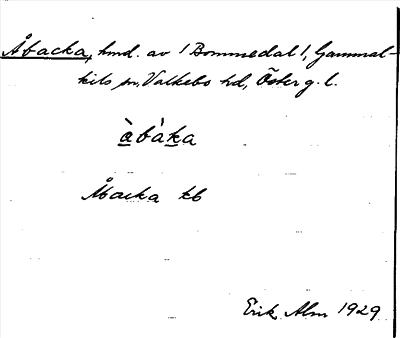 Åbacka, hmd. av 1 Bommedal 1, Gammal-
kils sn, Valkebo hd, Österg. l.
àbàka
Åbacka kb
Erik Alm 1929